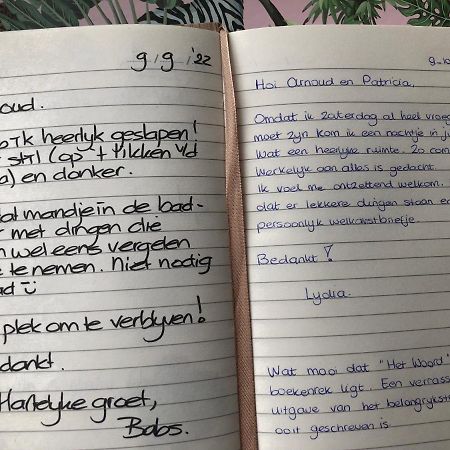 9/9 '22
oud.
ik heerlijk geslapen!
stil (op 't tikken v/d
a) en donker.
mandje in de bad-
met dingen die
n wel eens vergelen
te nemen. Niet nodig
ad
plek om te verblijven!
dankt.
Hartelijke groet,
Babs.
9-10
Hoi Arnoud en Patricia,
Omdat ik zaterdag al heel vroeg
moet zijn kom ik een nachtje in ju
Wat een heerlijke ruimte. Zo com
Werkelijk aan alles is gedacht.
Ik voel me ontzettend welkom,
dat er lekkere dingen staan e
persoonlijk welkomstbriefje.
Bedankt!
Lydia.
Wat mooi dat "Het Woord"
boekenrek ligt. Een verrass
uitgave van het belangrijkst
ooit geschreven is.